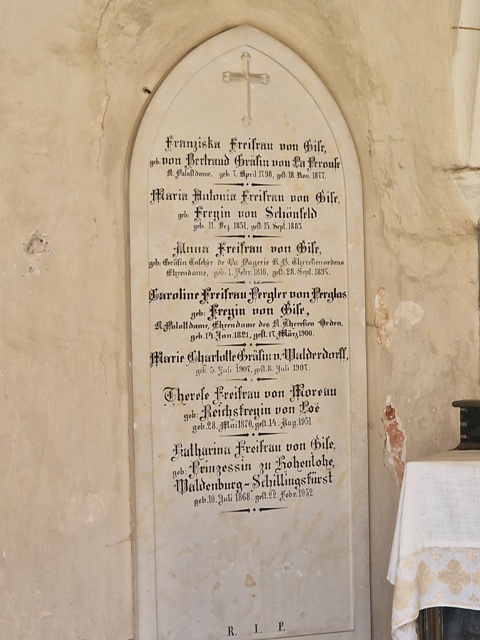 Franziska Freifrau von Gise,
geb. von Bertrand Gräfin von La Perouse
K. Palastdame, geb. 7. April 1798, gest. 18. Nov. 1877.
Maria Antonia Freifrau von Gise,
geb. Freyin von Schönfeld
geb. 11. Dez. 1851, gest. 15. Sept. 1885.
Anna Freifrau von Gise,
geb. Gräfin Tascher de La Pagerie K. B. Theresienordens
Ehrendame, geb. 1. Febr. 1816, gest. 28. Sept. 1897.
Caroline Freifrau Pergler von Perglas
geb. Freyin von Gise,
K. Palastdame, Ehrendame des K. Theresien Orden,
geb. 14. Jan. 1821, gest. 17. März, 1900.
Marie Charlotte Gräfin v. Walderdorff,
geb. 5. Juli 1907, gest. 8. Juli 1907.
Therese Freifrau von Moreau
geb. Reichsfreyin von Loé
geb. 28. Mai 1870, gest. 14. Aug. 1951
Katharina Freifrau von Gise,
geb. Prinzessin zu Hohenlohe,
Waldenburg-Schillingsfürst
geb. 10. Juli 1868, gest. 22. Febr. 1952
R. I. P.